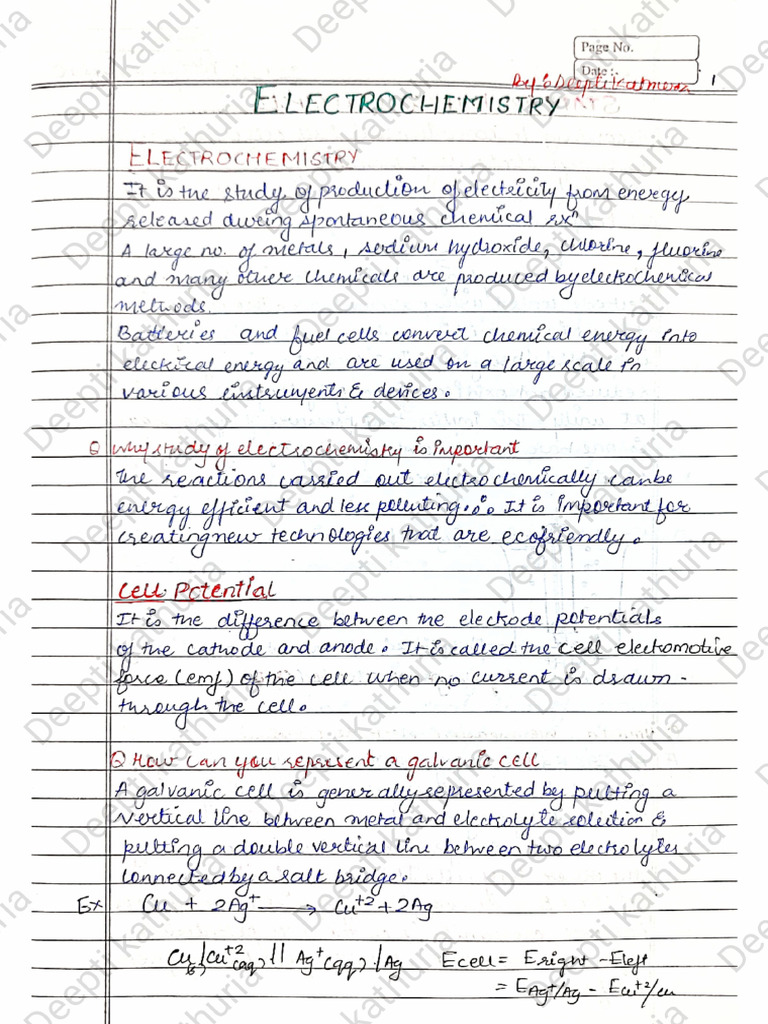 Page No.
Date :
By: Deepti Kathuria 1
ELECTROCHEMISTRY
ELECTROCHEMISTRY
It is the study of production of electricity from energy
released during spontaneous chemical rxⁿ
A large no. of metals, sodium hydroxide, chlorine, fluorine
and many other chemicals are produced by electrochemical
methods.
Batteries and fuel cells convert chemical energy into
electrical energy and are used on a large scale in
various instruments & devices.
Q Why study of electrochemistry is important
The reactions carried out electrochemically can be
energy efficient and less polluting. ∴ It is important for
creating new technologies that are ecofriendly.
Cell Potential
It is the difference between the electrode potentials
of the cathode and anode. It is called the cell electromotive
force (emf) of the cell when no current is drawn
through the cell.
Q How can you represent a galvanic cell
A galvanic cell is generally represented by putting a
vertical line between metal and electrolyte solution &
putting a double vertical line between two electrolytes
connected by a salt bridge.
Ex Cu + 2Ag⁺ ⟶ Cu⁺² + 2Ag
Cu(s) | Cu⁺²(aq) || Ag⁺(aq) | Ag Ecell = Eright - Eleft
= EAg⁺/Ag - ECu⁺²/Cu
Deepti Kathuria